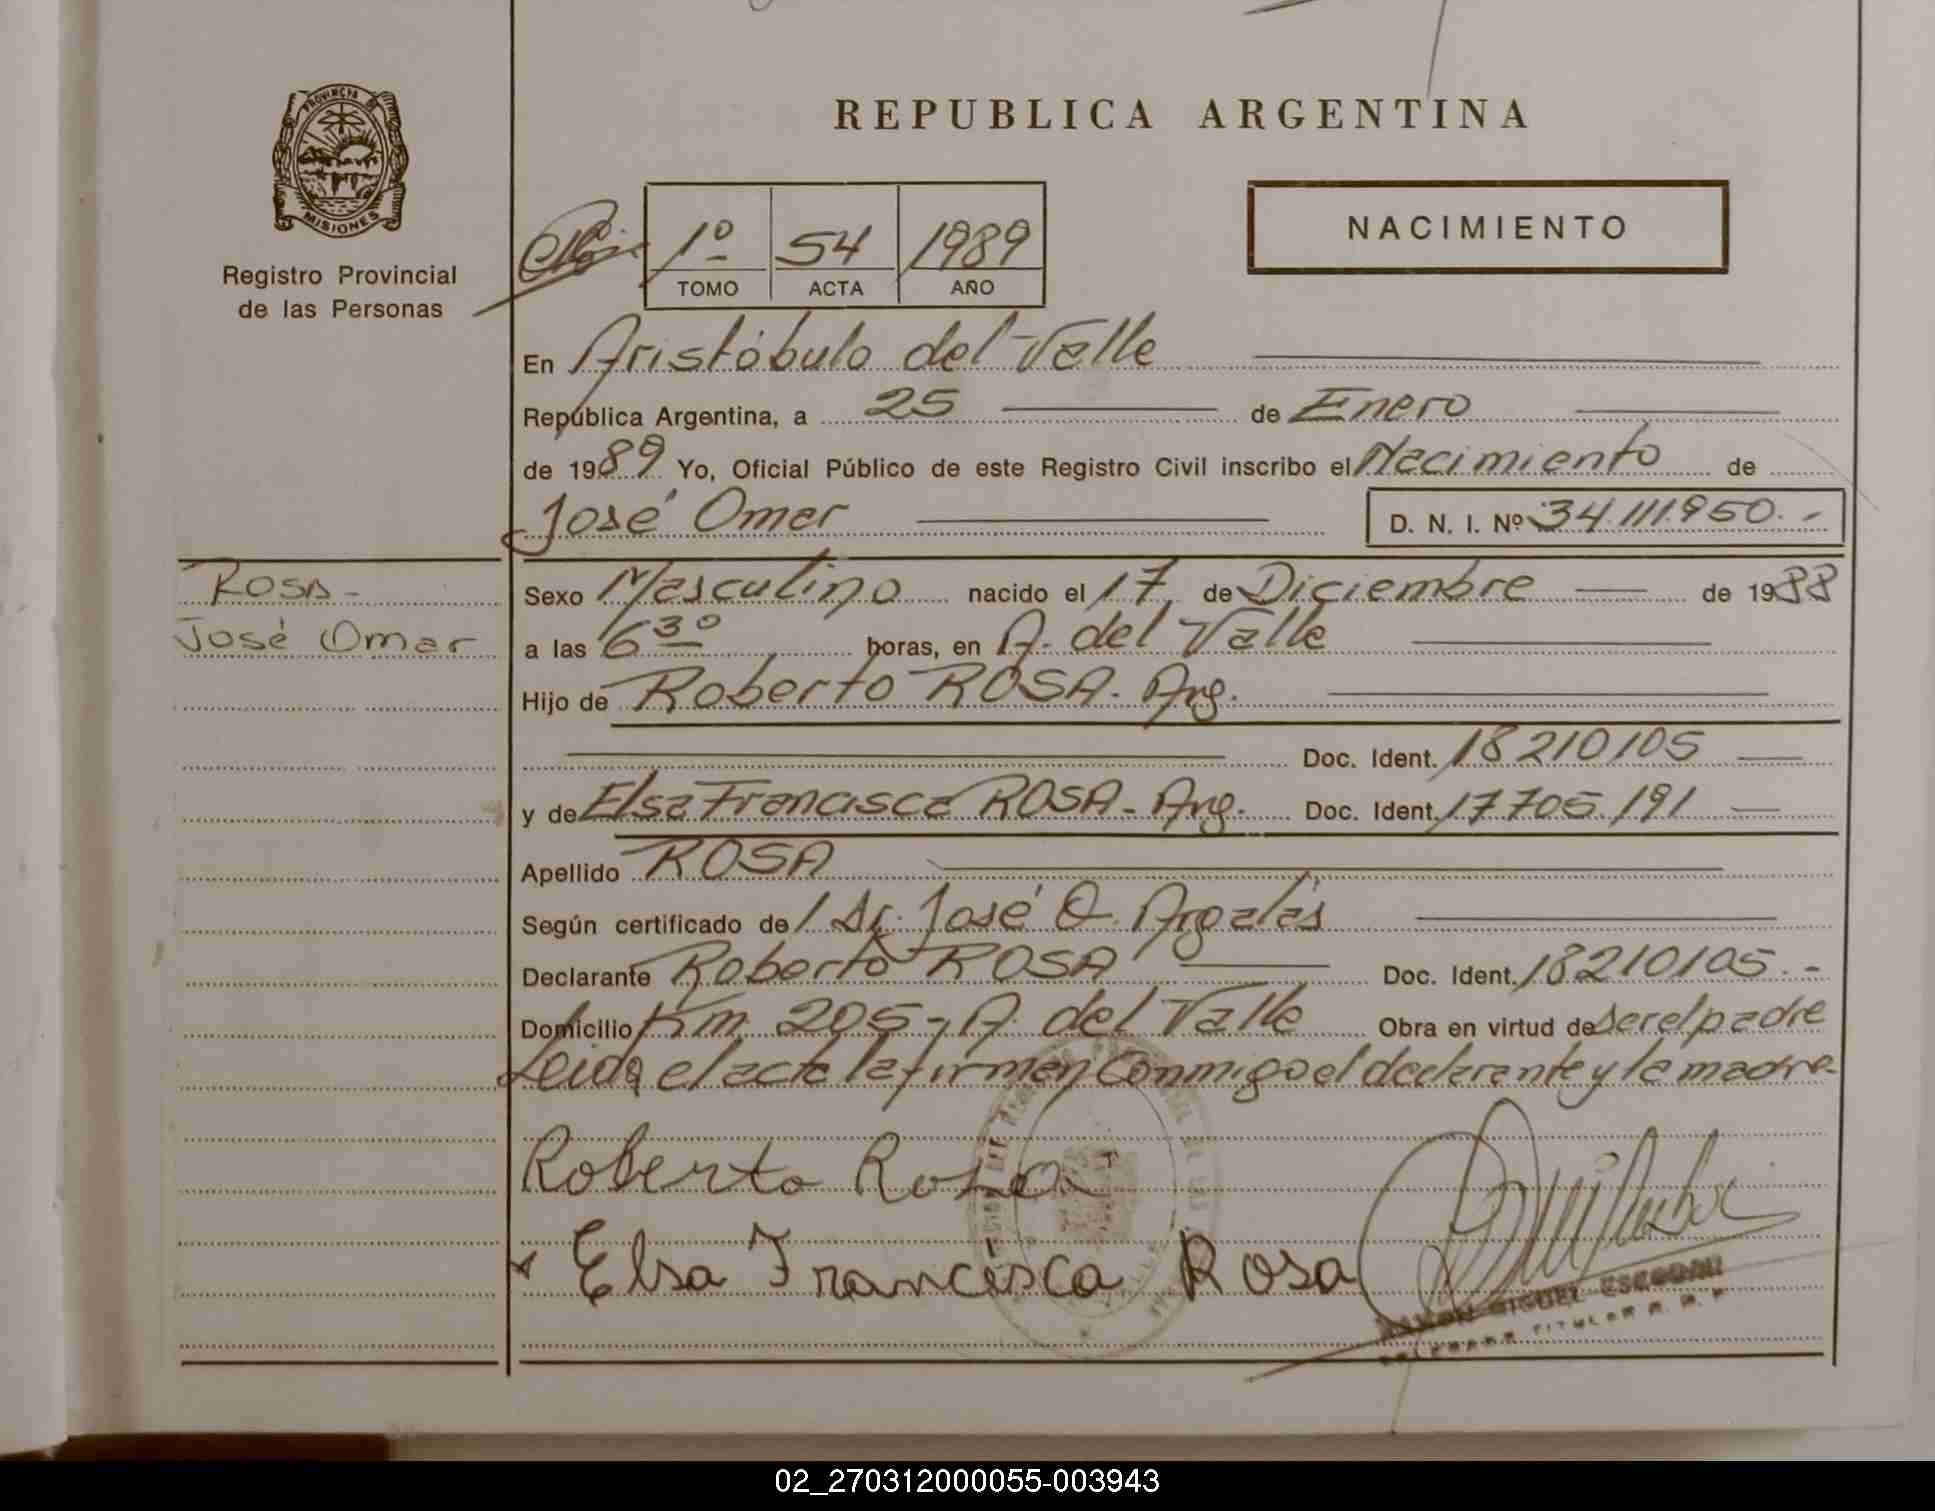 PROVINCIA DE
MISIONES
Registro Provincial
de las Personas
REPUBLICA ARGENTINA
NACIMIENTO
1º 54 1989
TOMO ACTA AÑO
En Aristóbulo del Valle
República Argentina, a 25 de Enero
de 1989 Yo, Oficial Público de este Registro Civil inscribo el Nacimiento de
José Omar D. N. I. Nº 34.111.950.-
Rosa-
José Omar
Sexo Masculino nacido el 17 de Diciembre de 1988
a las 6 30 horas, en A. del Valle
Hijo de Roberto ROSA. Arg.
Doc. Ident. 18210105
y de Elsa Francisca ROSA- Arg. Doc. Ident. 17705.191
Apellido ROSA
Según certificado de Dr. José O.
Declarante Roberto ROSA Doc. Ident. 18210105.-
Domicilio Km 205-A. del Valle Obra en virtud de ser el padre
Leida el acta la firman conmigo el declarante y la madre-
Roberto Rosa
Elsa Francisca Rosa
RAMON MIGUEL ESCOBAR
02_270312000055-003943